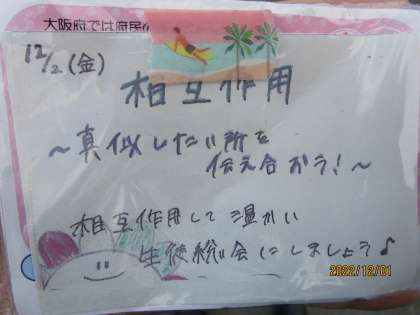 大阪府では府民
12/2(金)
相互作用
～真似したい所を
伝え合おう!～
相互作用して温かい
生徒総会にしましょう♪
2022/12/01